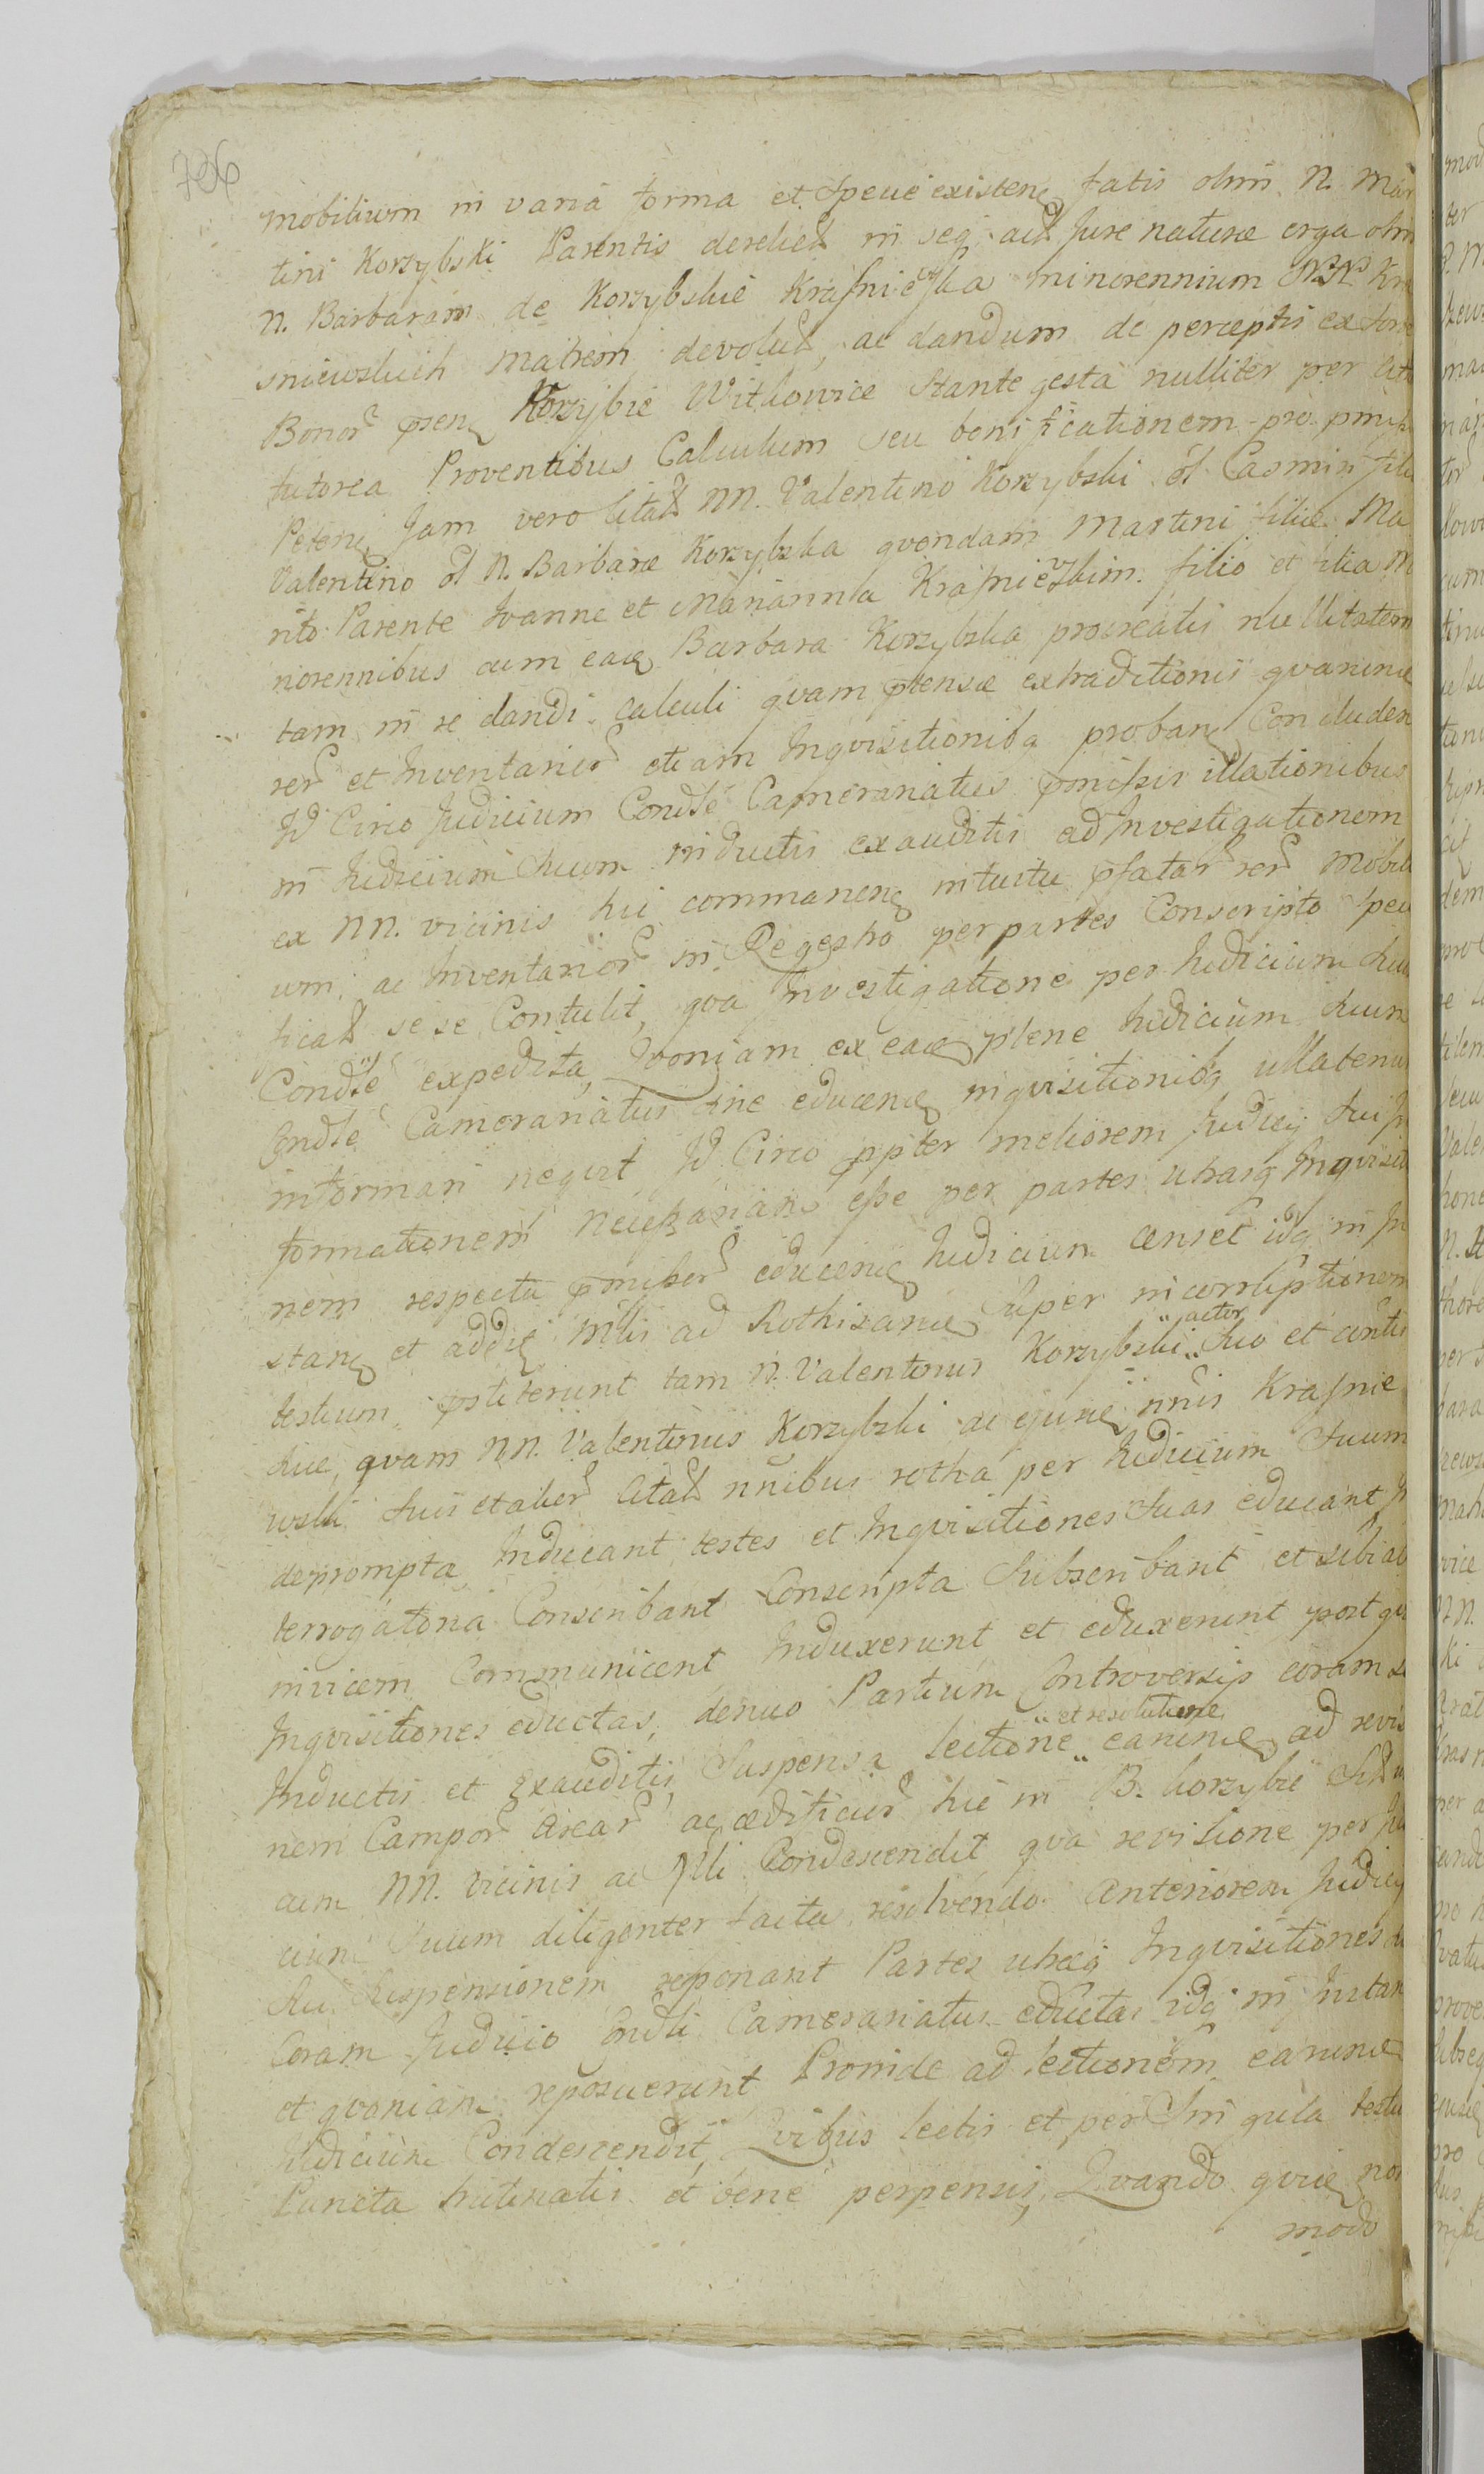 726
mobilium in varia forma et specie existen fatis olim N. Mar
tini Korzybski Parentis derelict in seq. act Jure naturæ erga olim
N. Barbaram de Korzybskie Krasniewska minorennium NN Kra
sniewskich Matrem devolut, ac dandum de perceptis ex sorte
Bonor pren Korzybie Witkowice Stante gesta nulliter per Cit
tutorea Proventibus Calculum seu bonificationem pro pmiss
Peten Jam vero Citat NN. Valentino Korzybski ol. Casimiri filio
Valentino ol N. Barbaræ Korzybska qvondam Martini filiæ Ma
rito Parente Joanne et Marianna Krasniewskim filio et filia Mi
norennibus cum eade Barbara Korzybska procreatis nullitatem
tam in se dandi calculi qvam ptensæ extraditionis qvarunde
rer et Inventarior etiam Inqvisitionibq proban Concluden
Id Circo Judicium Condse Cameranatus pmissis illationibus
in Judicium Suum inductis exauditis ad Investigationem
ex NN. vicinis hic commanen intuitu pfatar rer Mobili
um, ac Inventarior in Regestro per partes Conscripto speci
ficat sese Contulit, qva Investigatione per Judicium Suum
Condse expedita, Qvoniam ex eade plene Judicium Suum
Condse Cameranatus sine educend inqvisitionibq ullatenus
informari neqvit Id Circo ppter meliorem Judicij sui In
formationem necessariam esse per partes utrasq Inqvisitio
nem respectu pmissor educend Judicium censet idq in In
stan et addit Mlis ad Rothisand super incorruptionem
testium, pstiterunt tam N. Valentinus Korzybski " actor suo et conth
suæ, qvam NN. Valentinus Korzybski ac ejusde nnis Krasnie
wski suis et alier Citat nnibus rotha per Judicium Suum
deprompta Inducant testes et Inqvisitiones Suas educant In
terrogatoria Conscribant Conscripta Subscribant et sibi ad
invicem Communicent Induxerunt et eduxerunt post qvas
Inqvisitiones eductas, denuo Partium Controversijs coram se
Inductis et Exauditis, Suspensa lectione " et resolutione earunde ad revisio
nem Campor Arear ac ædificior hic in B. Korzybie Sit
cum NN. vicinis ac Mli Condescendit qva revisione per Judi
cium Suum diligenter facta resolvendo anteriorem Judicij
Sui Suspensionem reponant Partes utræq Inqvisitiones
Coram Judicio Condsi Cameranatus eductas idq in Instan
et qvoniam reposuerunt Proinde ad lectionem earunde
Judicium Condescendit, Qvibus lectis et per Singula testiu
Puncta trutinatis et bene perpensis, Qvando qvide non
modo